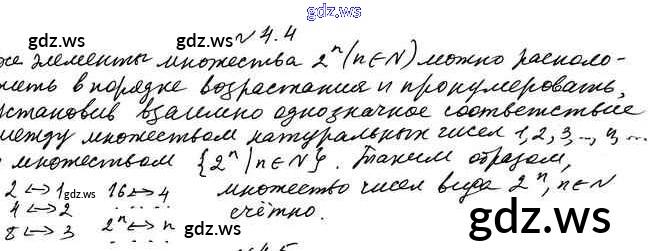 gdz.ws
№ 4.4
gdz.ws gdz.ws
же элементы множества 2ⁿ (n∈N) можно располо-
жить в порядке возрастания и пронумеровать,
установив взаимно однозначное соответствие
между множеством натуральных чисел 1, 2, 3, ..., n, ...
множеством {2ⁿ | n∈N}. Таким образом,
2 ↔ 1 gdz.ws 16 ↔ 4 множество чисел вида 2ⁿ, n∈N
4 ↔ 2 . . . . . счётно.
8 ↔ 3 2ⁿ ↔ n
gdz.ws gdz.ws
№ 4.5